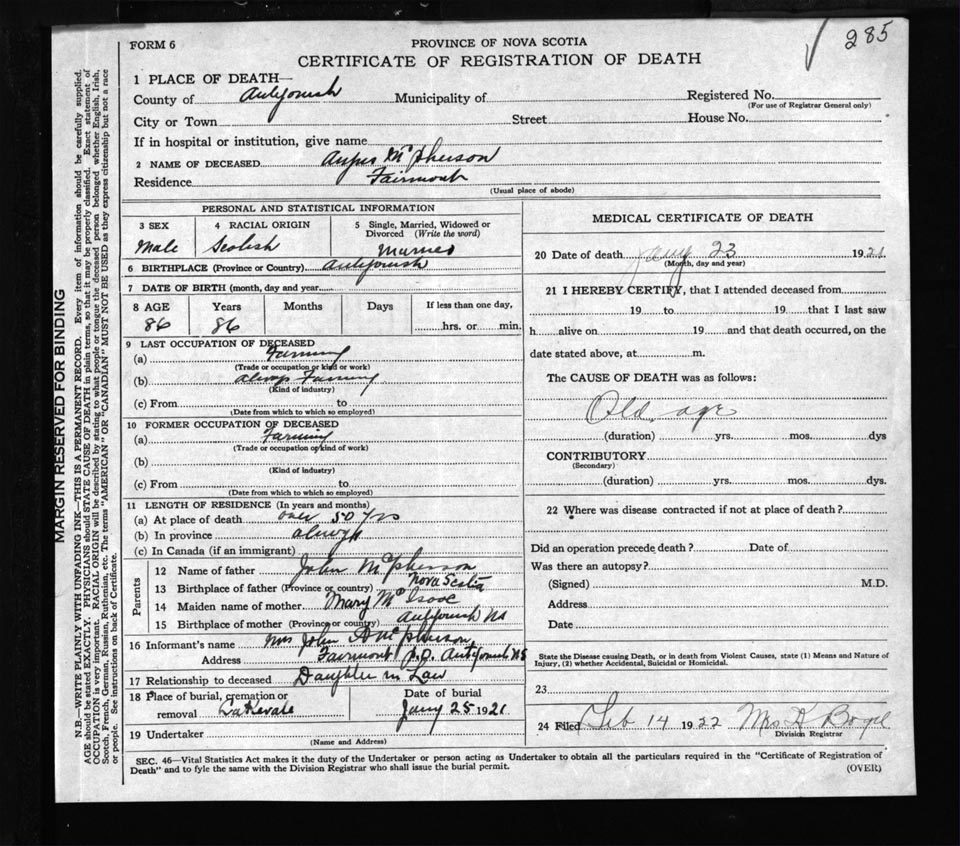 285
FORM 6
PROVINCE OF NOVA SCOTIA
CERTIFICATE OF REGISTRATION OF DEATH
1 PLACE OF DEATH—
County of Antigonish Municipality of Registered No.
(For use of Registrar General only)
City or Town Street House No.
If in hospital or institution, give name
2 NAME OF DECEASED Angus McPherson
Residence Fairmont
(Usual place of abode)
PERSONAL AND STATISTICAL INFORMATION
3 SEX 4 RACIAL ORIGIN 5 Single, Married, Widowed or
Divorced (Write the word)
Male Scotish Married
6 BIRTHPLACE (Province or Country) Antigonish
7 DATE OF BIRTH (month, day and year)
8 AGE Years Months Days If less than one day,
86 86 hrs. or min.
9 LAST OCCUPATION OF DECEASED
(a) Farming
(Trade or occupation or kind or work)
(b) always Farming
(Kind of industry)
(c) From to
(Date from which to which so employed)
10 FORMER OCCUPATION OF DECEASED
(a) Farming
(Trade or occupation or kind of work)
(b)
(Kind of industry)
(c) From to
(Date from which to which so employed)
11 LENGTH OF RESIDENCE (In years and months)
(a) At place of death over 50 yrs
(b) In province always
(c) In Canada (if an immigrant)
Parents
12 Name of father John McPherson
13 Birthplace of father (Province or country) Nova Scotia
14 Maiden name of mother Mary McIsaac
15 Birthplace of mother (Province or country) Antigonish NS
16 Informant's name Mrs John A McPherson
Address Fairmont P.O. Antigonish NS
17 Relationship to deceased Daughter in Law
18 Place of burial, cremation or Date of burial
removal Jany 25 1921
19 Undertaker
(Name and Address)
MEDICAL CERTIFICATE OF DEATH
20 Date of death Jany 23 1921
(Month, day and year)
21 I HEREBY CERTIFY, that I attended deceased from
19 to 19 that I last saw
h alive on 19 and that death occurred, on the
date stated above, at m.
The CAUSE OF DEATH was as follows:
Old age
(duration) yrs. mos. dys
CONTRIBUTORY
(Secondary)
(duration) yrs. mos. dys.
22 Where was disease contracted if not at place of death?
Did an operation precede death? Date of
Was there an autopsy?
(Signed) M.D.
Address
Date
State the Disease causing Death, or in death from Violent Causes, state (1) Means and Nature of
Injury, (2) whether Accidental, Suicidal or Homicidal.
23
24 Filed Feb 14 1922 Mrs
Division Registrar
SEC. 46—Vital Statistics Act makes it the duty of the Undertaker or person acting as Undertaker to obtain all the particulars required in the "Certificate of Registration of
Death" and to fyle the same with the Division Registrar who shall issue the burial permit.
(OVER)
MARGIN RESERVED FOR BINDING
N.B.—WRITE PLAINLY WITH UNFADING INK—THIS IS A PERMANENT RECORD. Every item of information should be carefully supplied.
AGE should be stated EXACTLY. PHYSICIANS should STATE CAUSE OF DEATH in plain terms, so that it may be properly classified. Exact statement of
OCCUPATION is very important. RACIAL ORIGIN will be described by stating to what people or tongue the deceased person belonged, whether English, Irish,
Scotch, French, German, Russian, Ruthenian, etc. The terms "AMERICAN" OR "CANADIAN" MUST NOT BE USED as they express citizenship but not a race
or people. See instructions on back of Certificate.